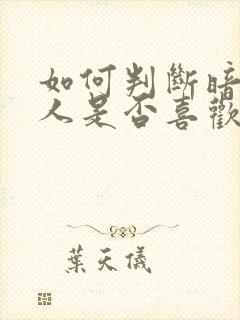 如何判斷暗
人是否喜歡
葉天儀